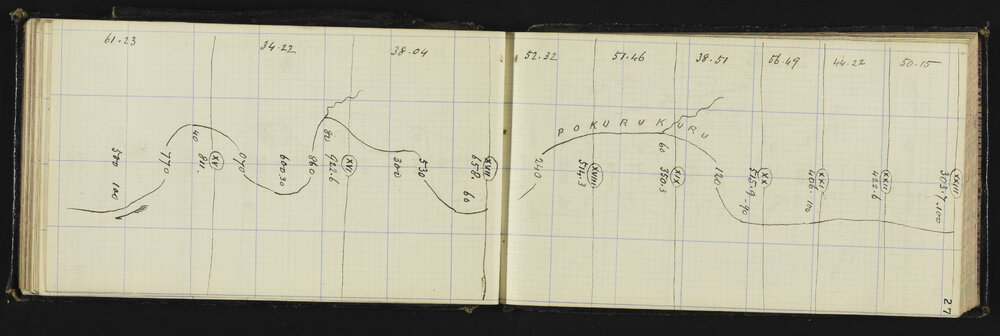 61.23
34.22
38.04
52.32
51.46
38.51
56.49
44.22
50.15
POKURUKURU
500 100
770
40
811.
XV
070
600.30
860
80
922.6
XVI
300
530
658
XVII
60
240
574.3
XVIII
60
350.3
XIX
120
545.9-90
XX
406.100
XXI
422.6
XXII
303.7.100
XXIII
27